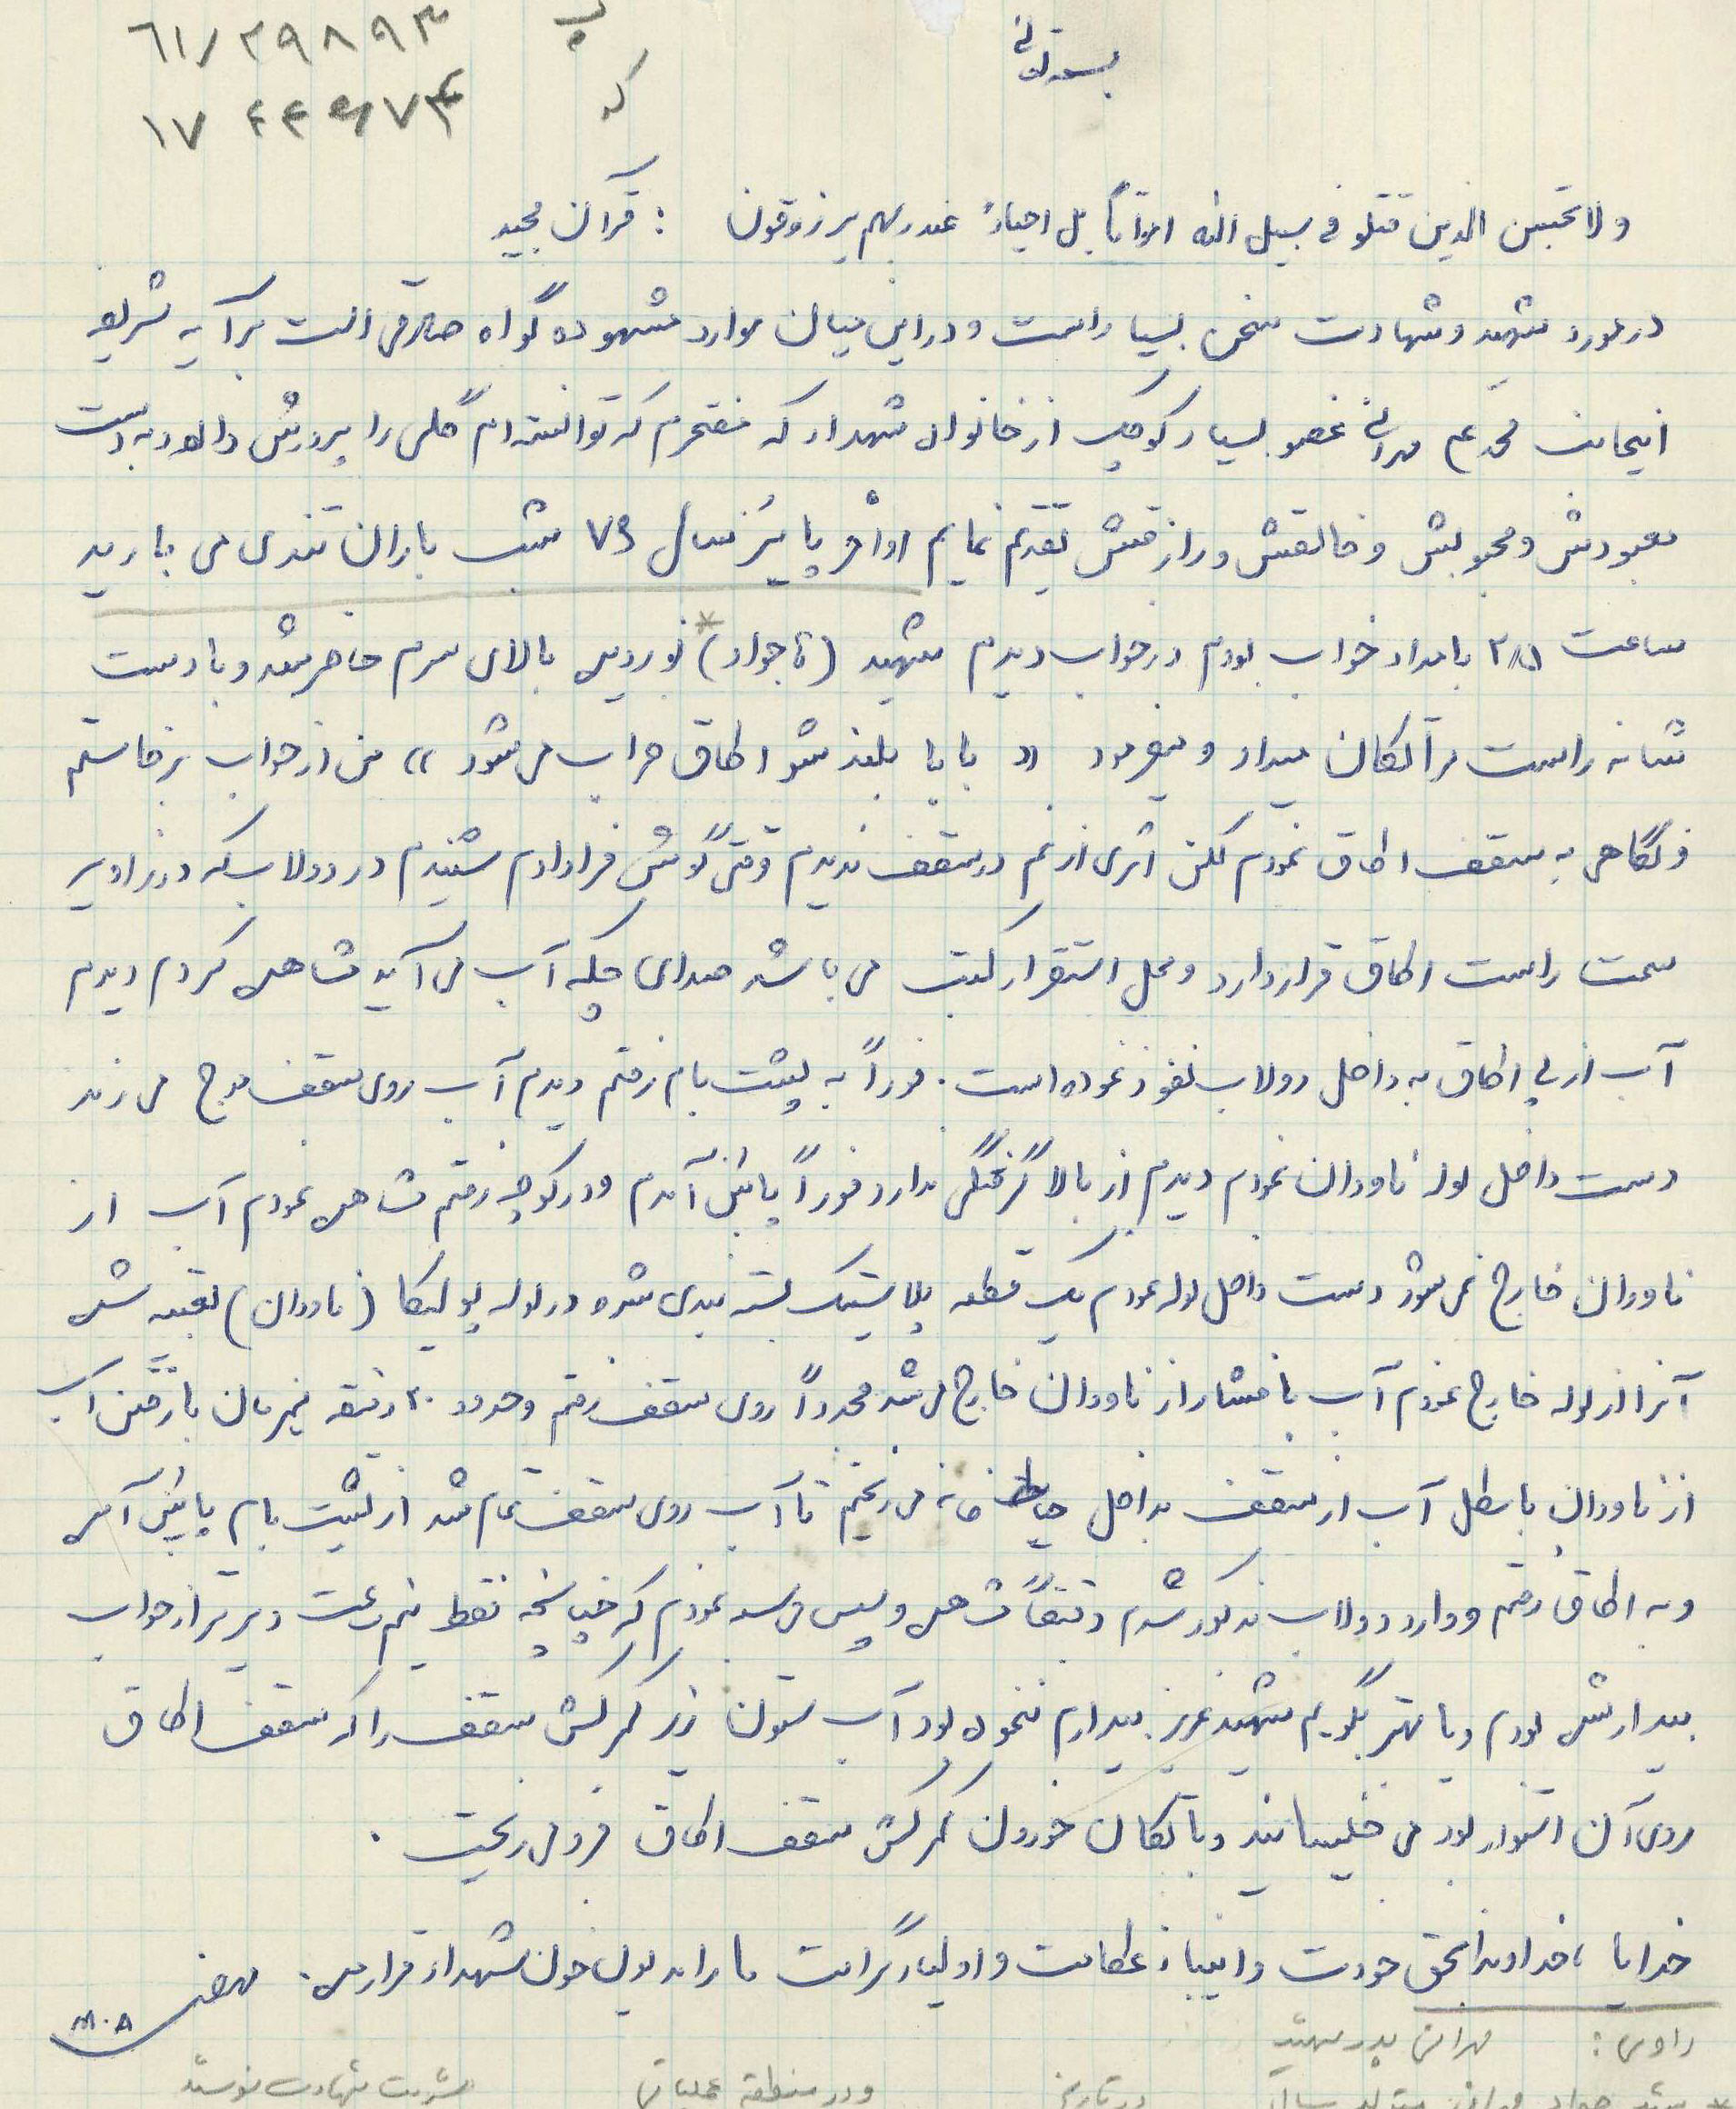 ۶۱/۲۹۸۹۳
بسمه تعالی
ولا تحسبن الذین قتلو فی سبیل الله امواتاً بل احیاءٌ عند ربهم یرزوقون : قرآن مجید
در مورد شهید و شهادت سخن بسیار است و در این میان موارد مشهوده گواه صادقی است بر آیه شریفه
اینجانب عضو بسیار کوچک از خانواده شهدا که مفتخرم که توانسته ام گلی را پرورش داده و به دست
معبودش و محبوبش و خالقش و رازقش تقدیم نمایم اواخر پاییز سال ۷۶ شب باران تندی می بارید
ساعت ۲/۵ بامداد خواب بودم در خواب دیدم شهید (آقا جواد)* نوردیده بالای سرم حاضر شد و با دست
شانه راست مرا تکان میداد و میفرمود « بابا بلند شو اطاق خراب می شود » من از خواب برخاستم
و نگاهی به سقف اطاق نمودم لکن اثری از نم در سقف ندیدم وقتی گوش فرا دادم شنیدم در دولاب که در زاویه
سمت راست اطاق قرار دارد و محل استقرار کتب می باشد صدای چکه آب می آید مشاهده کردم دیدم
آب از پی اطاق به داخل دولاب نفوذ نموده است . فوراً به پشت بام رفتم دیدم آب روی سقف موج می زند
دست داخل لوله ناودان نمودم دیدم از بالا گرفتگی ندارد فوراً پائین آمدم و در کوچه رفتم مشاهده نمودم آب از
ناودان خارج نمی شود دست داخل لوله نمودم یک قطعه پلاستیک بسته بندی شده در لوله پولیکا (ناودان) تعبیه شده
آنرا از لوله خارج نمودم آب با فشار از ناودان خارج می شد مجدداً روی سقف رفتم و حدود ۲۰ دقیقه همزمان با رفتن آب
از ناودان با سطل آب از سقف بداخل حیاط خانه می ریختم تا آب روی سقف تمام شد از پشت بام پایین آمده
و به اطاق رفتم و وارد دولاب مذکور شدم دقیقاً مشاهده و سپس محاسبه نمودم که چنانچه فقط نیم ساعت دیرتر از خواب
بیدار شده بودم و یا بهتر بگویم شهید عزیز بیدارم ننموده بود آب ستون زیر کمرکش سقف را که سقف اطاق
روی آن استوار بود می خیسانید و با تکان خوردن کمرکش سقف اطاق فرو می ریخت .
خدایا ، خداوندا بحق خودت و انبیاء عظامت و اولیاء گرامت ما را مدیون خون شهداء قرار مده .
M.A
راوی : مهرانی پدر شهید
در تاریخ و در منطقه عملیاتی شربت شهادت نوشید